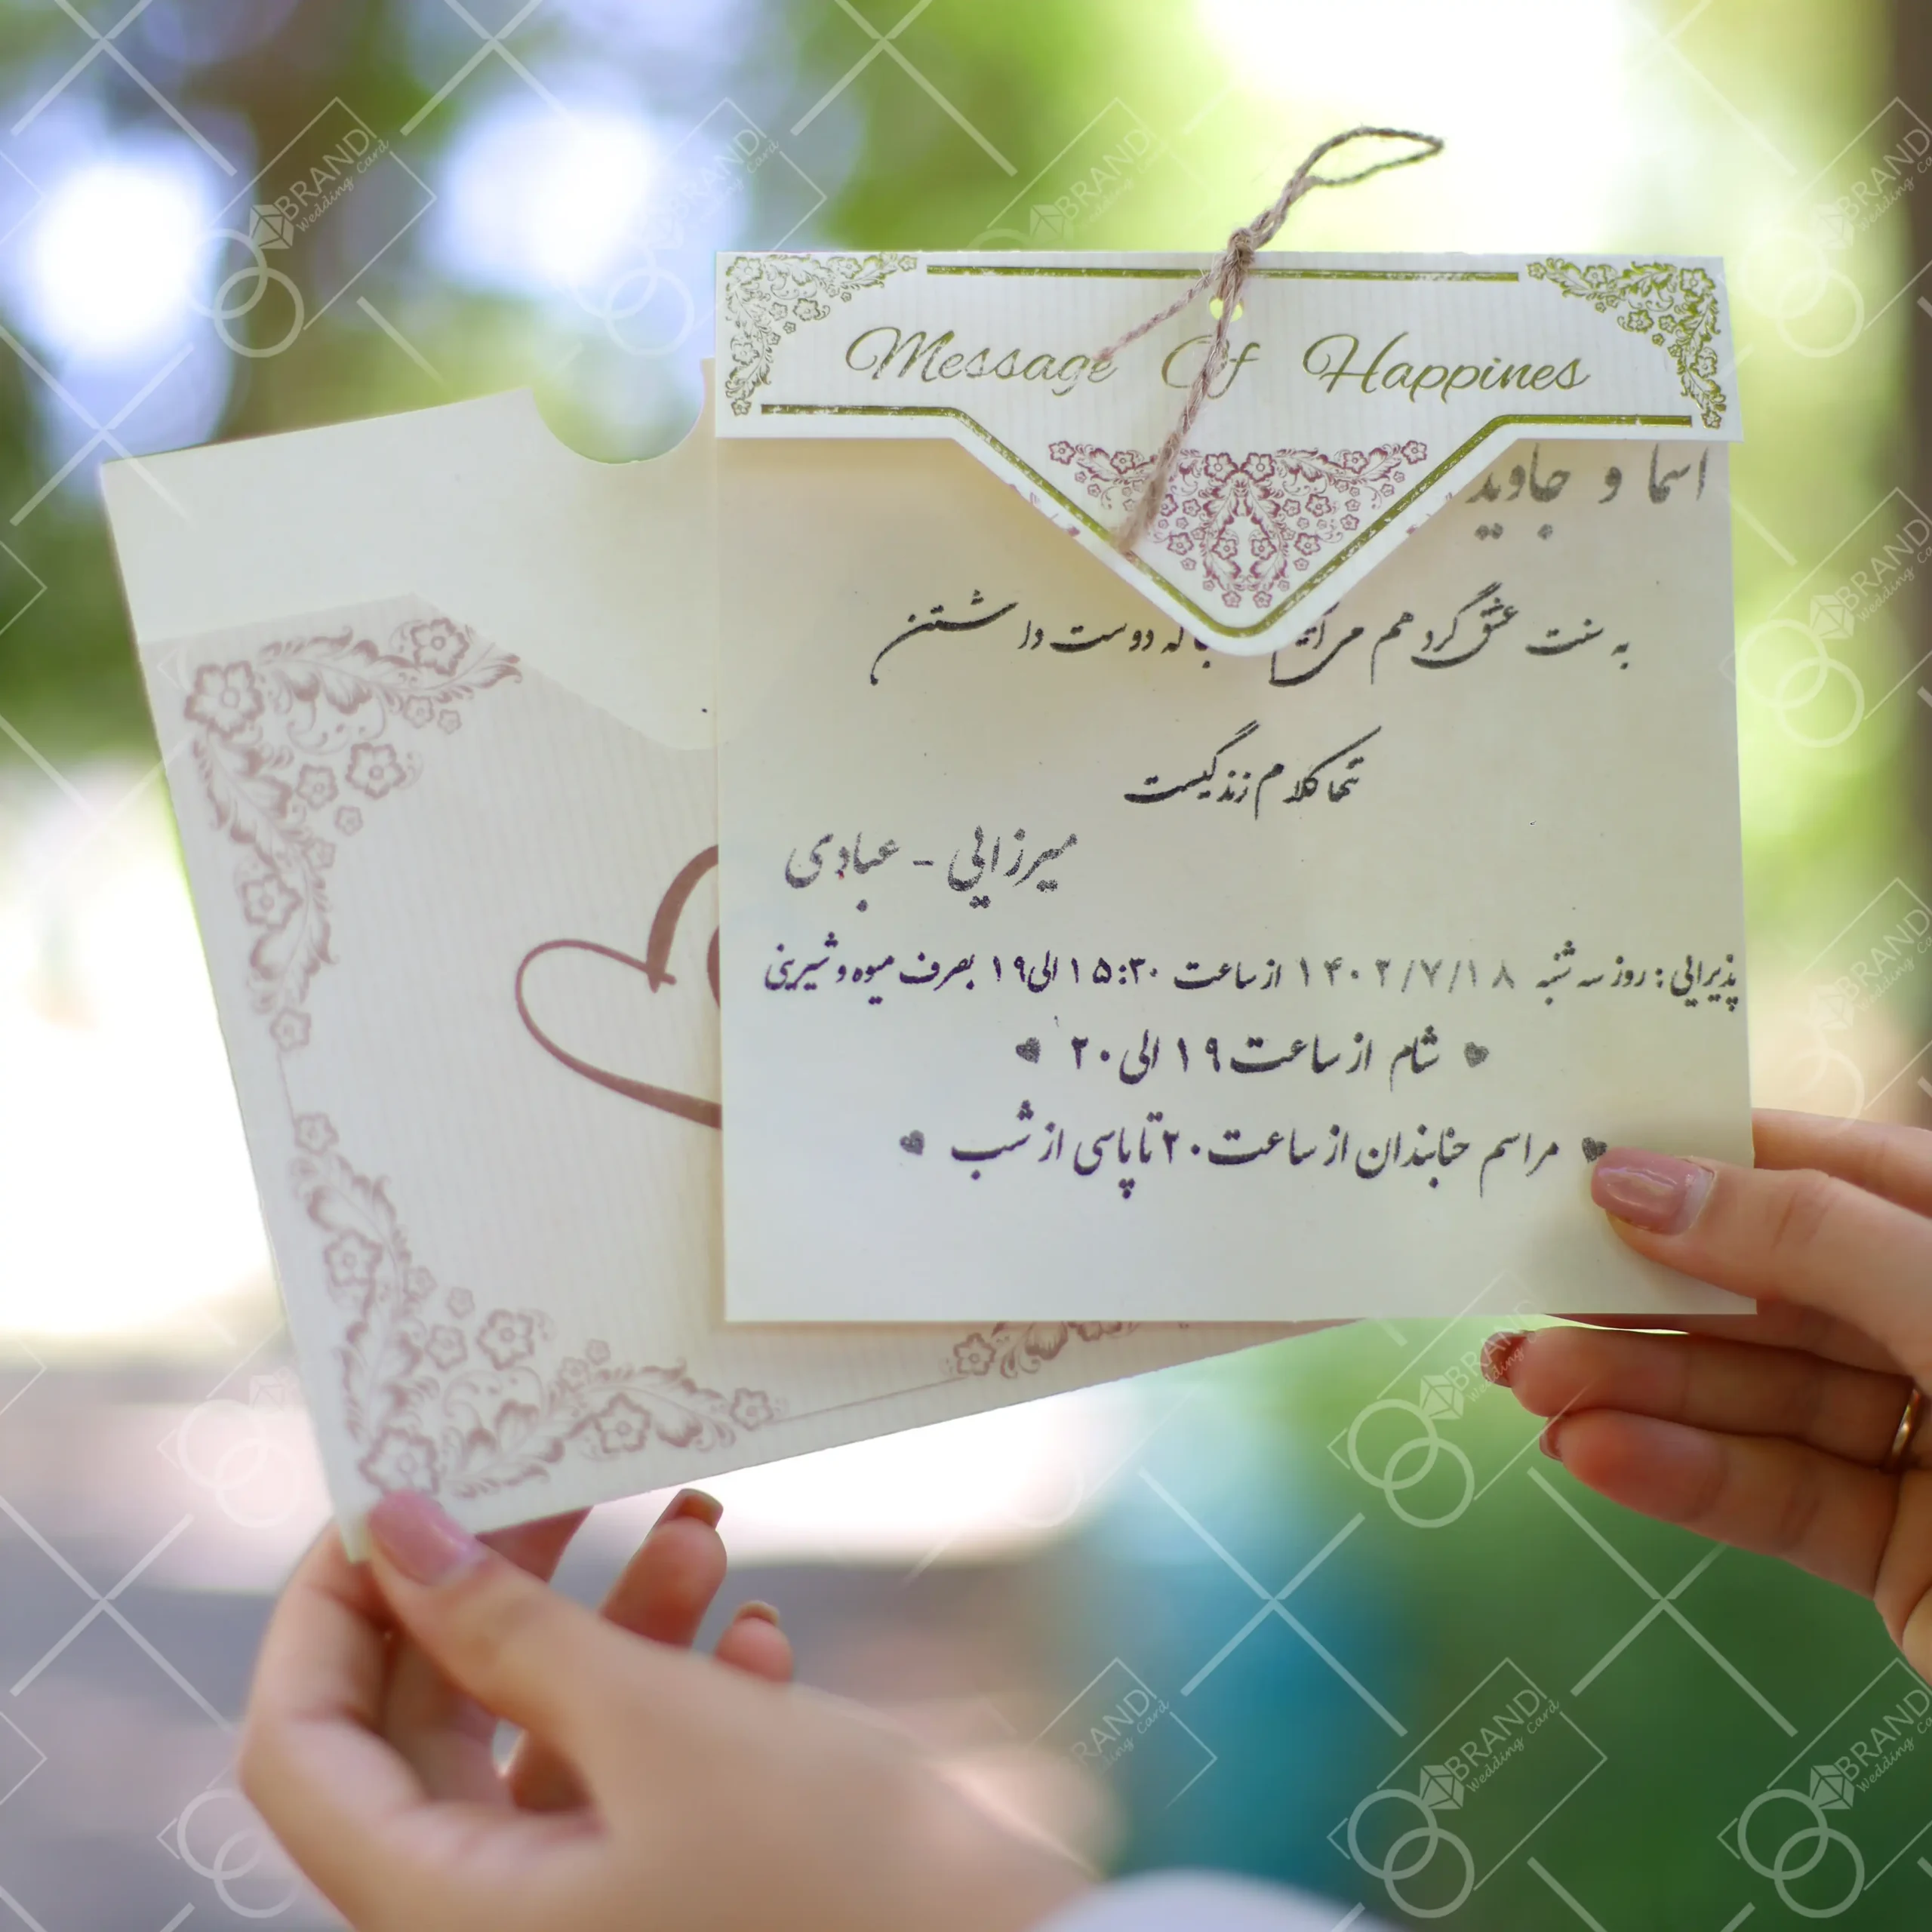 Message Of Happines
اسما و جاوید
به سنت عشق گرد هم می آییم که دوست داشتن
تنها کلام زندگیست
میرزایی - عبادی
پذیرایی : روز سه شنبه ۱۴۰۲/۷/۱۸ از ساعت ۱۵:۳۰ الی ۱۹ بصرف میوه و شیرینی
شام از ساعت ۱۹ الی ۲۰
مراسم حنابندان از ساعت ۲۰ تا پاسی از شب
BRAND
Wedding Card